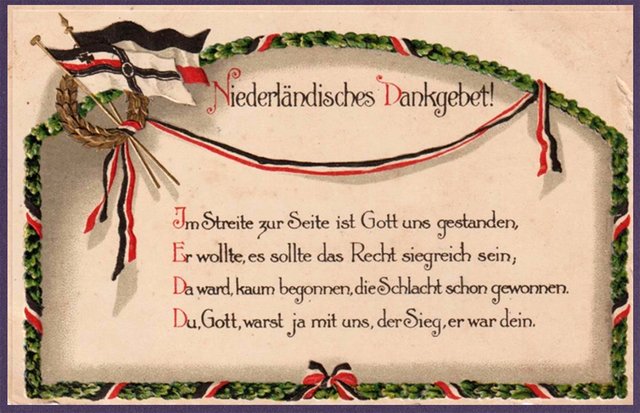 Niederländisches Dankgebet!
Im Streite zur Seite ist Gott uns gestanden,
Er wollte, es sollte das Recht siegreich sein;
Da ward, kaum begonnen, die Schlacht schon gewonnen.
Du, Gott, warst ja mit uns, der Sieg, er war dein.